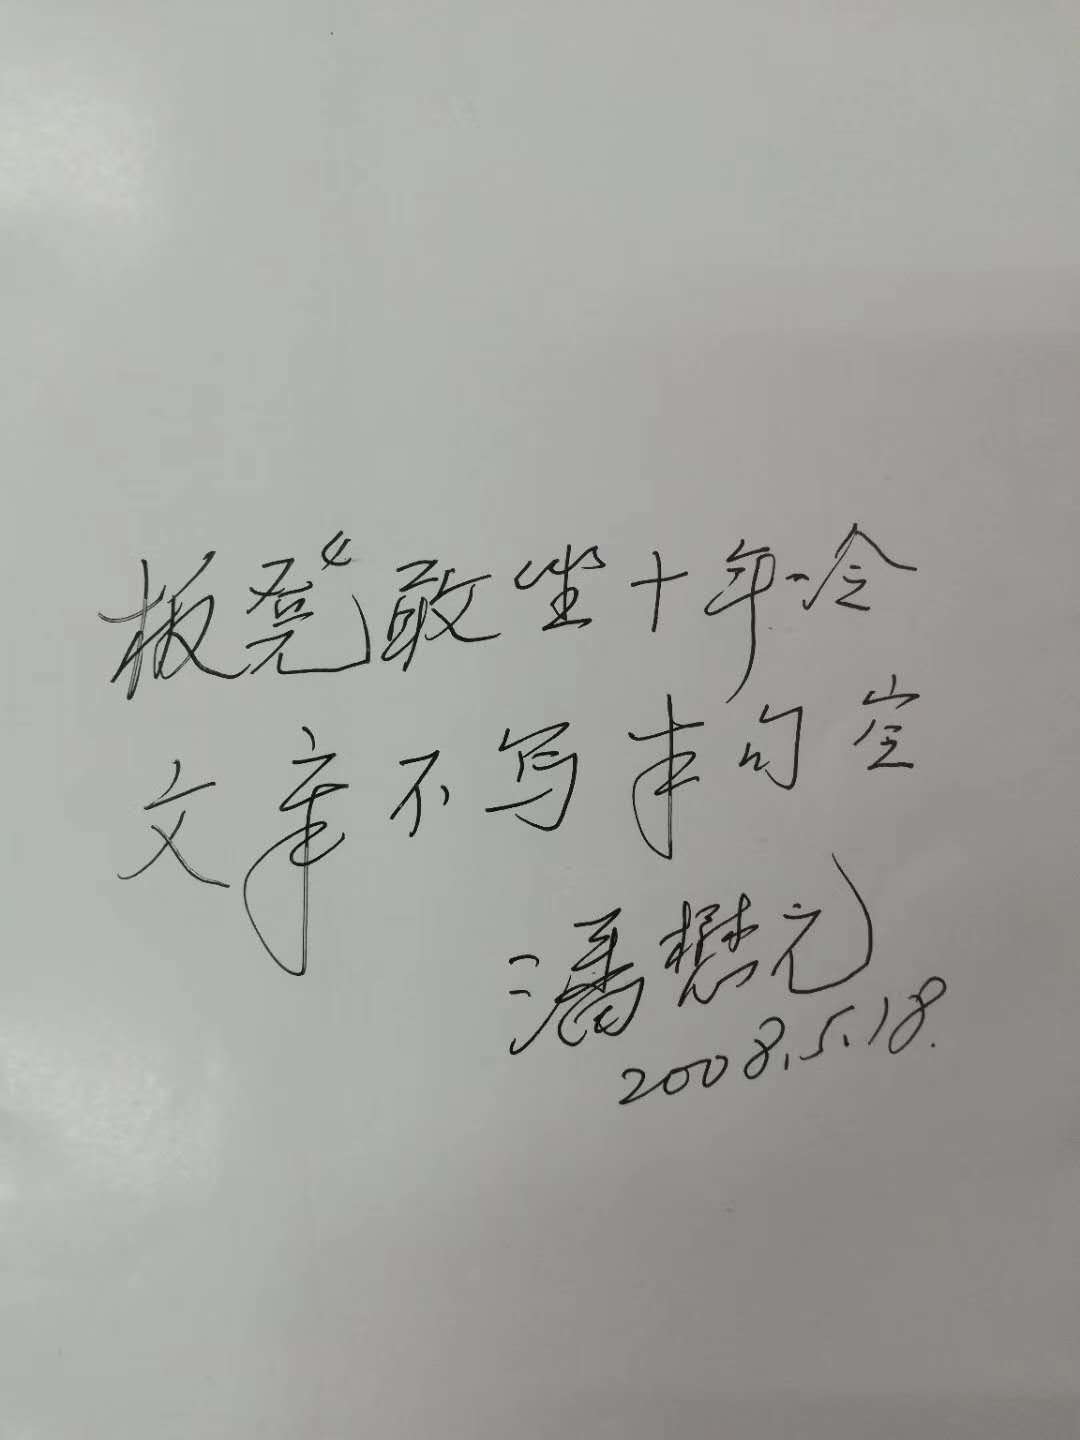 板凳敢坐十年冷
文章不写半句空
潘懋元
2008.5.18.